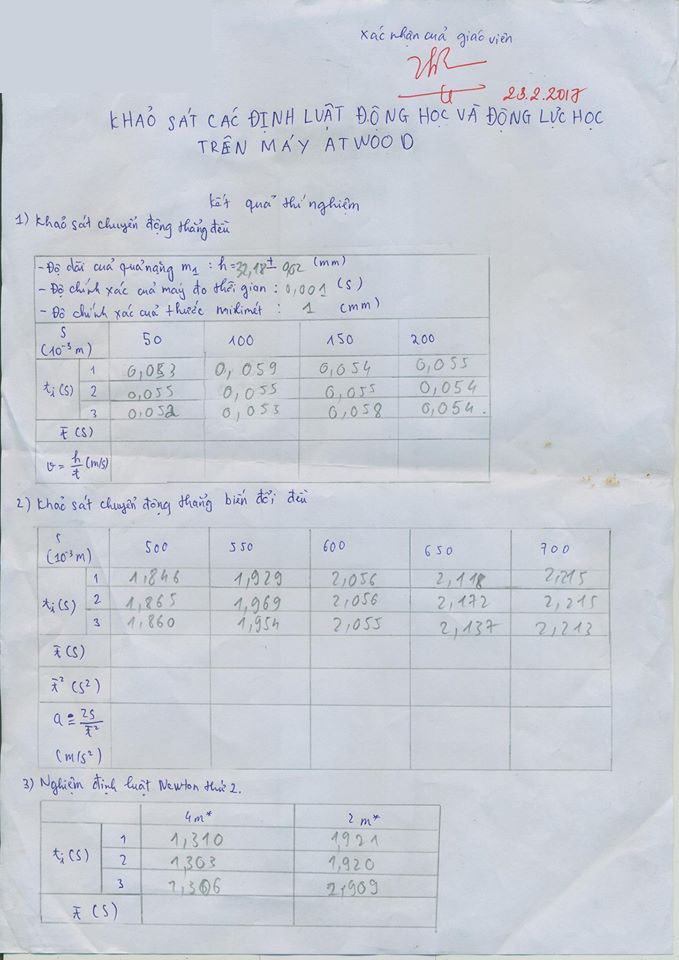 xác nhận của giáo viên
23.2.2017
KHẢO SÁT CÁC ĐỊNH LUẬT ĐỘNG HỌC VÀ ĐỘNG LỰC HỌC
TRÊN MÁY ATWOOD
Kết quả thí nghiệm
1) Khảo sát chuyển động thẳng đều
- Độ dài của quả nặng m₁ : h = 32,18 ± 0,02 (mm)
- Độ chính xác của máy đo thời gian : 0,001 (s)
- Độ chính xác của thước milimét : 1 (mm)
s (10⁻³ m) 50 100 150 200
tᵢ (s) 1 0,053 0,059 0,054 0,055
2 0,055 0,055 0,055 0,054
3 0,052 0,053 0,058 0,054.
t̄ (s)
v = h/t̄ (m/s)
2) Khảo sát chuyển động thẳng biến đổi đều
s (10⁻³ m) 500 550 600 650 700
tᵢ (s) 1 1,846 1,929 2,056 2,118 2,215
2 1,865 1,969 2,056 2,172 2,215
3 1,860 1,954 2,055 2,137 2,213
t̄ (s)
t̄² (s²)
a = 2s/t̄²
(m/s²)
3) Nghiệm định luật Newton thứ 2.
4m* 2m*
tᵢ (s) 1 1,310 1,921
2 1,303 1,920
3 1,306 1,909
t̄ (s)